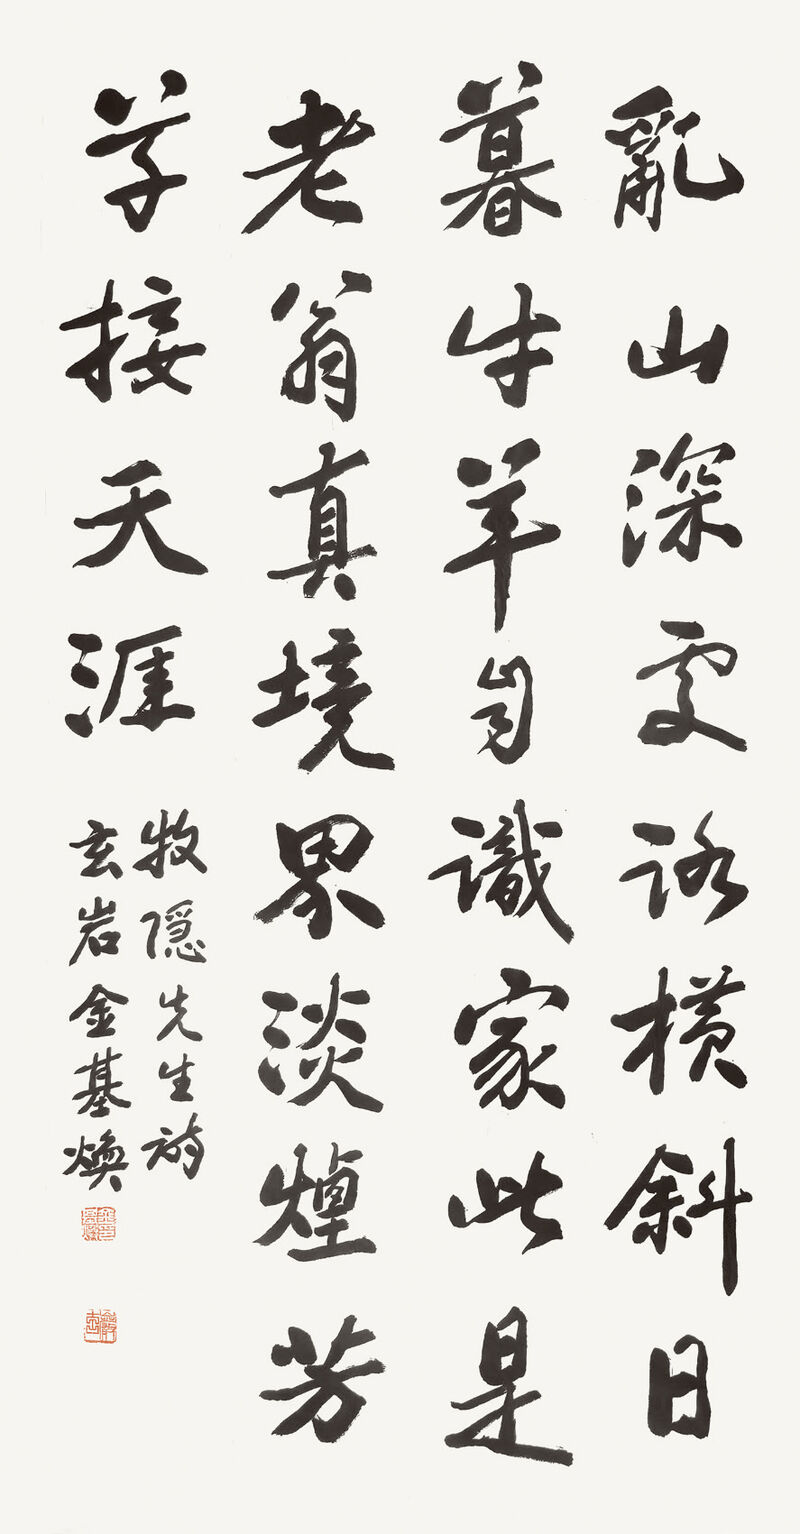 亂山深處路橫斜日
暮牛羊自識家此是
老翁真境界淡煙芳
草接天涯
牧隱先生詩
玄岩金基煥